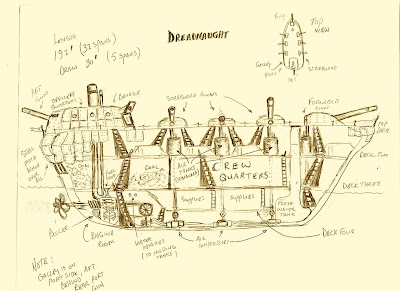 DREADNAUGHT
LENGTH
192' (32 SPANS)
DRAW 30' (5 SPANS)
TOP
VIEW
STARBOARD
AFT
GUN
OFFICERS
QUARTERS
BRIDGE
STARBOARD GUNS
FORWARD
GUN
TOP
DECK
DECK TWO
DECK THREE
DECK FOUR
COAL
COAL
CREW
QUARTERS
SUPPLIES
SUPPLIES
FRESH
WATER
TANK
BOILER
ENGINE
ROOM
WATER
(TO HOLDING
TANKS)
AIR
COMPRESSORS
NOTE:
GALLEY IS ON
PORT SIDE, AFT
BEHIND REAR PORT
GUN